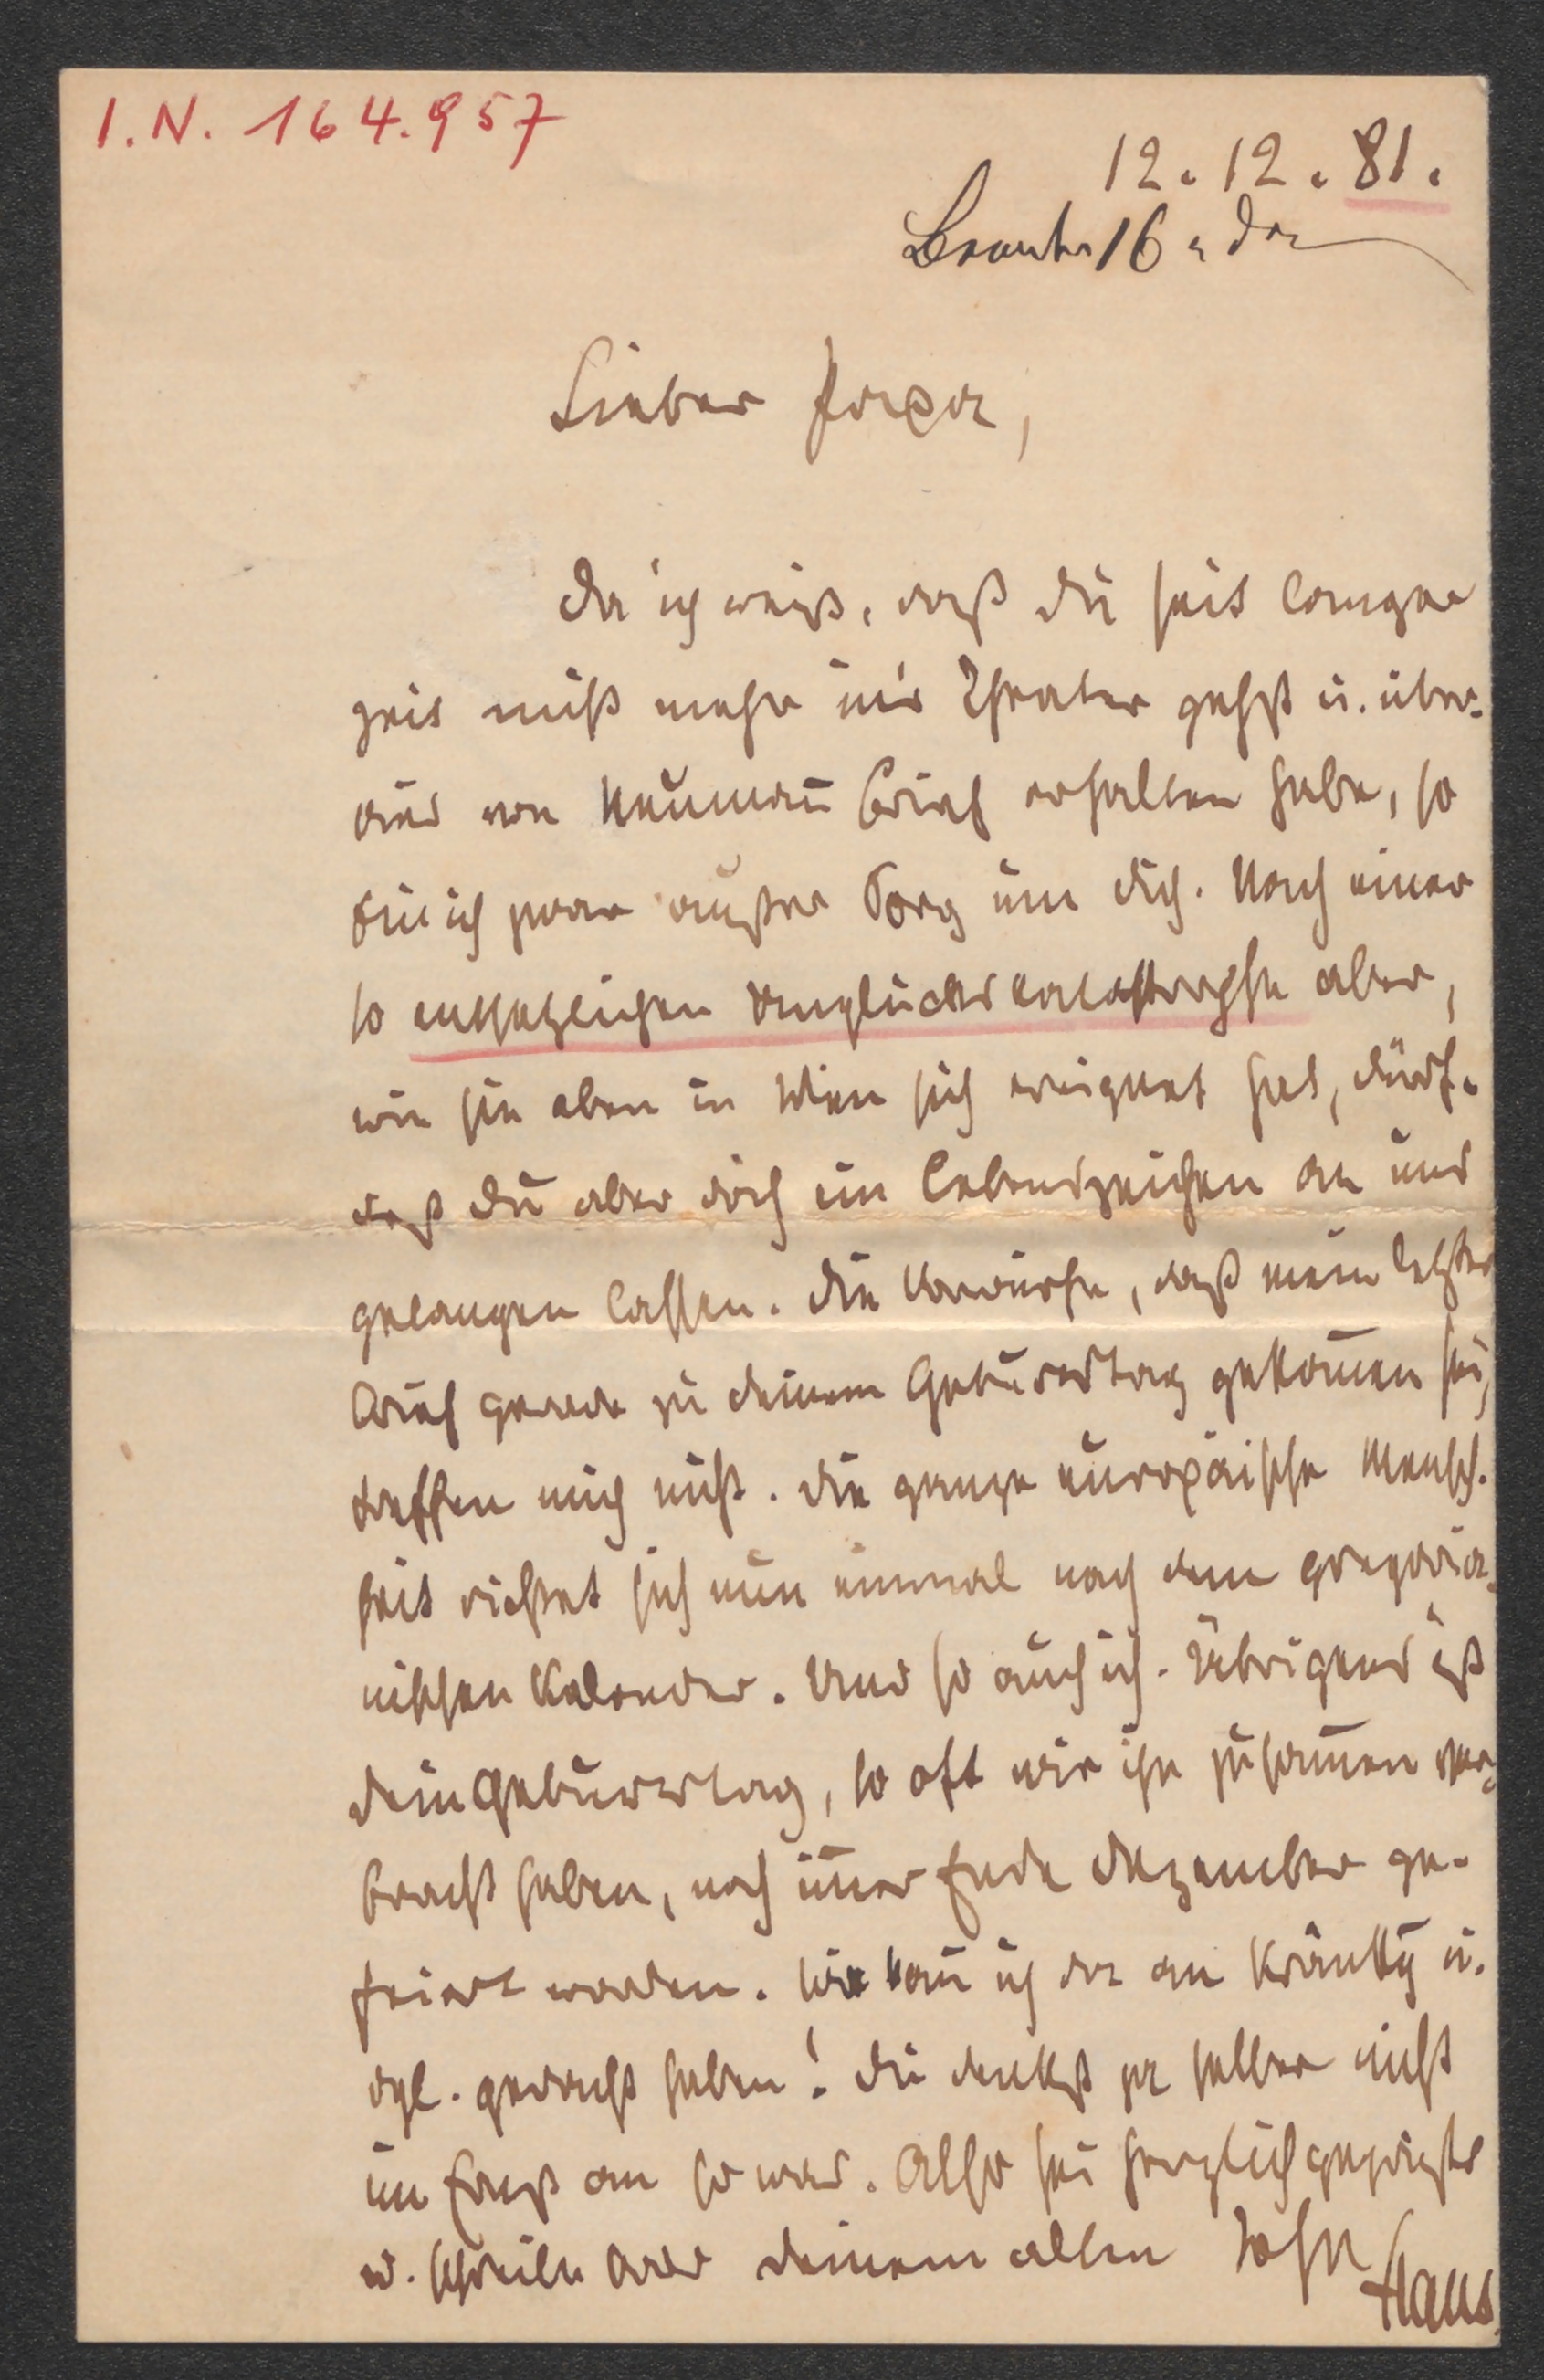 I.N. 164.957
12. 12. 81.
Beantw 16. Dez
Lieber Papa,
Da ich weiß, daß Du seit langer
Zeit nicht mehr in's Theater gehst u. über-
dies von Neumañ Brief erhalten habe, so
bin ich zwar außer Sorg um Dich. Nach einer
so entsetzlichen Unglückskatastrophe aber,
wie sie eben in Wien sich ereignet hat, dürf-
test Du aber doch ein Lebenszeichen an uns
gelangen lassen. Die Vorwürfe, daß mein letzter
Brief gerade zu deinem Geburtstag gekom̄en sei,
treffen mich nicht. Die ganze europäische Mensch-
heit richtet sich nun einmal nach dem gregoria-
nischen Kalender. Und so auch ich. Übrigens ist
dein Geburtstag, so oft wir ihn zusam̄en ver-
bracht haben, noch im̄er Ende Dezember ge-
feiert worden. Wie kañ ich da an Kränkg u.
dgl. gedacht haben! Du denkst ja selber nicht
im Ernst an so was. Also sei herzlich gegrüßt
u. schreibe bald deinem alten Sohn
Hans.